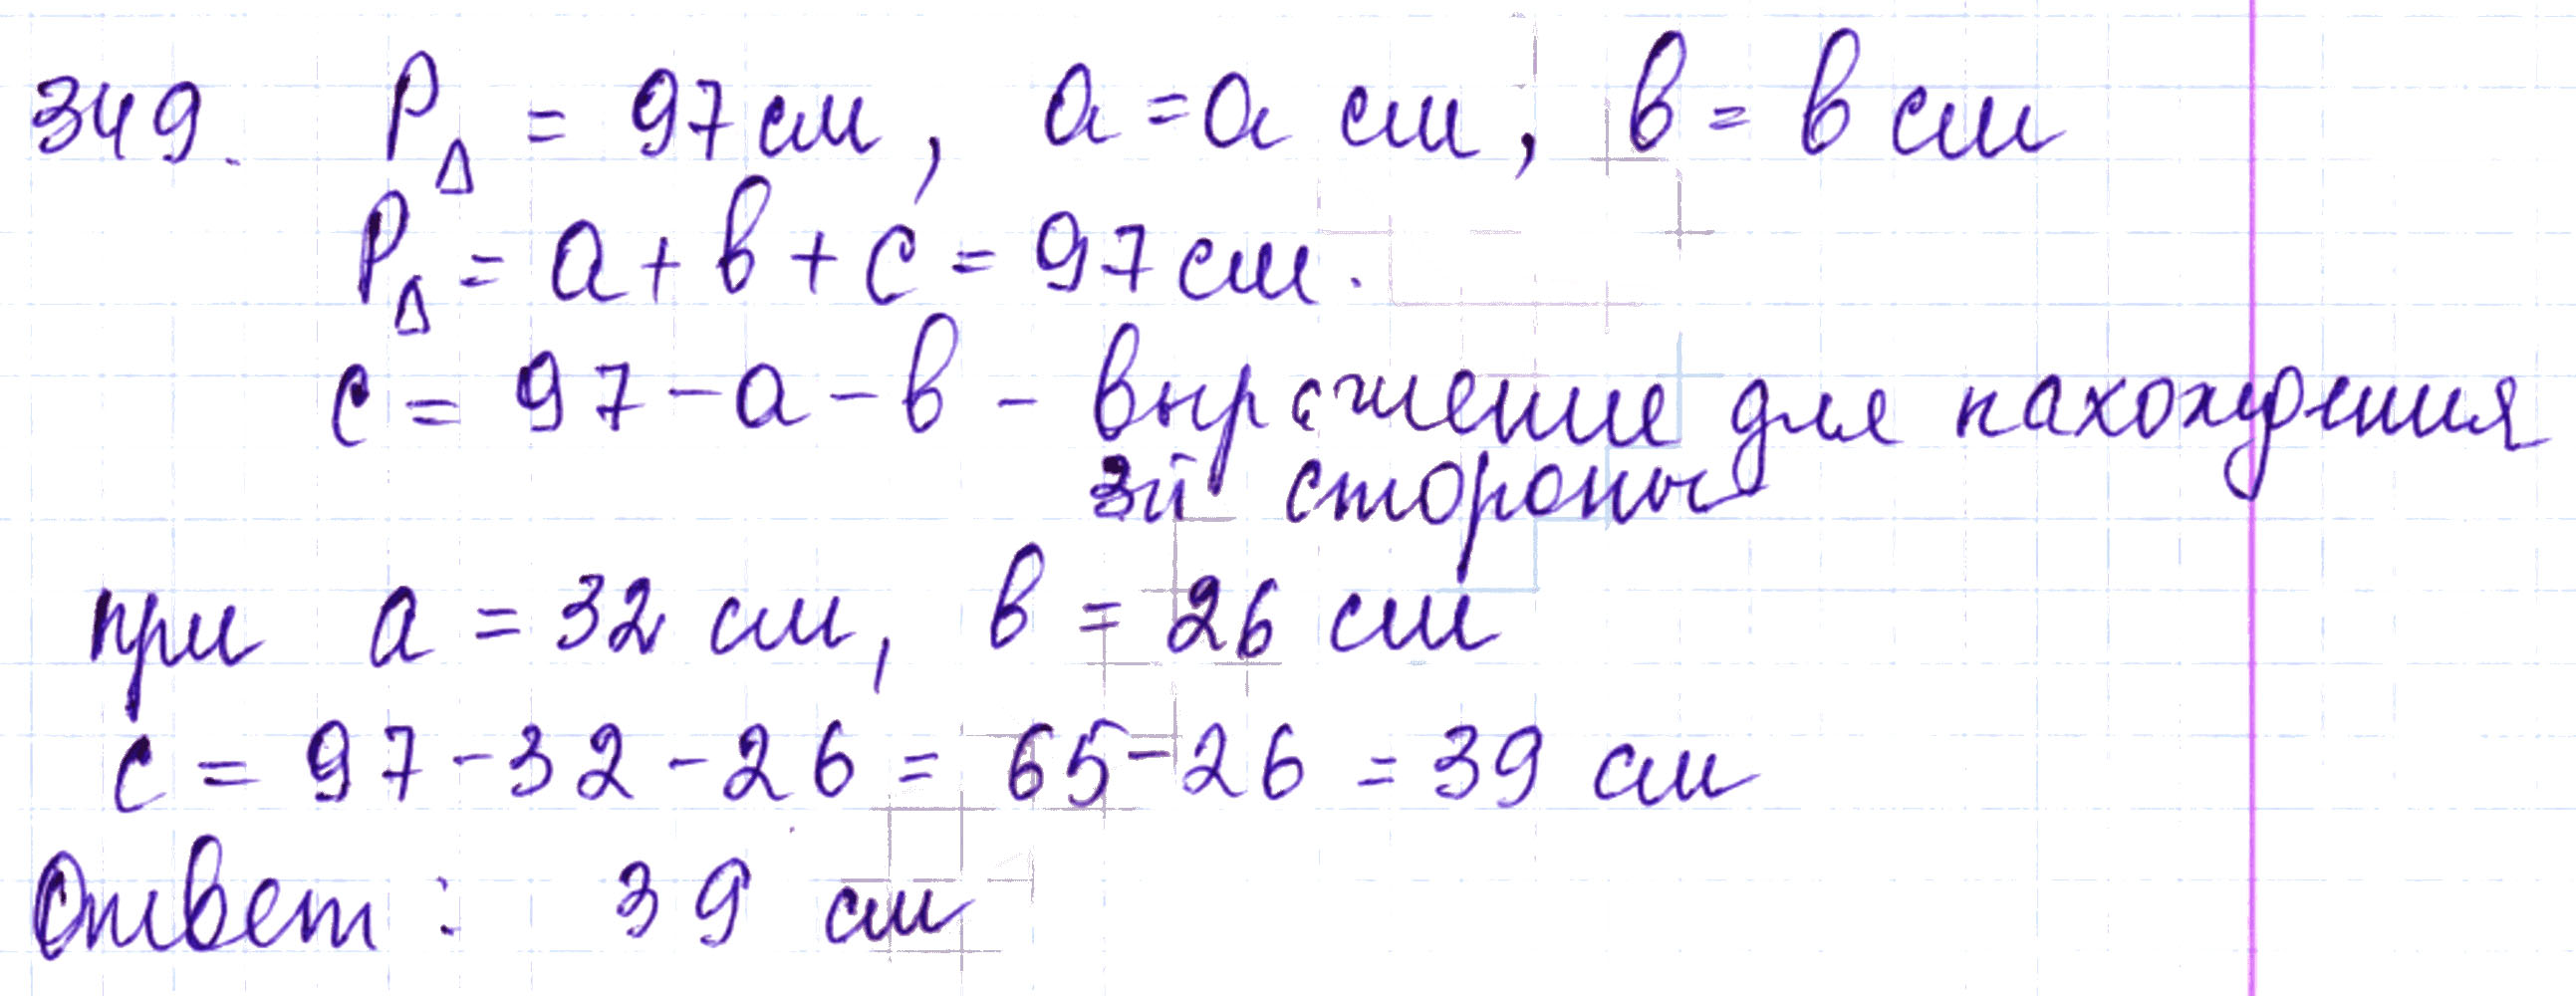 349. P△ = 97 см, a = a см, в = в см
P△ = a + в + c = 97 см.
c = 97 - a - в - выражение для нахождения
3й стороны
при a = 32 см, в = 26 см
c = 97 - 32 - 26 = 65 - 26 = 39 см
Ответ: 39 см